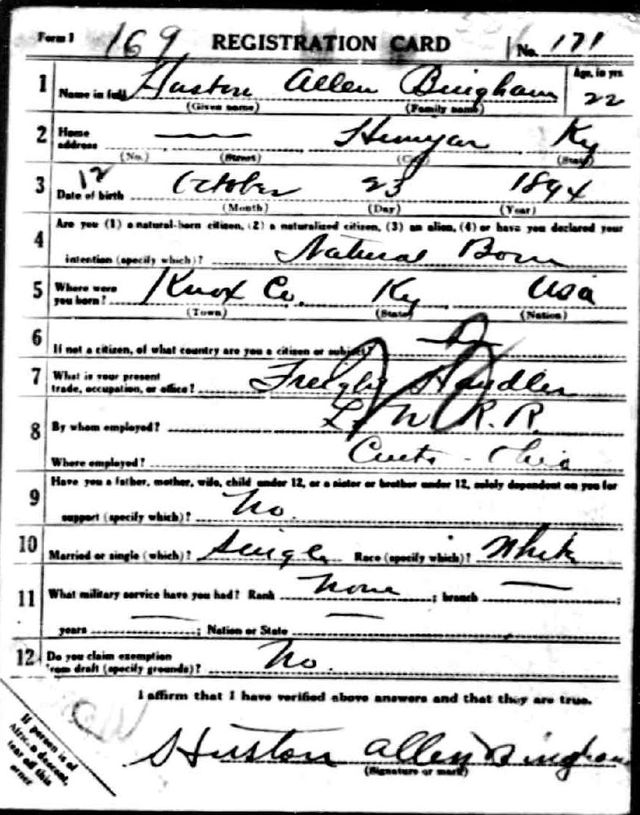 Form 1 169 REGISTRATION CARD No. 171
1 Name in full Huston Allen Bingham Age, in yrs. 22
(Given name) (Family name)
2 Home address — Himyar Ky
(No.) (Street) (City) (State)
3 Date of birth 12 October 23 1894
(Month) (Day) (Year)
4 Are you (1) a natural-born citizen, (2) a naturalized citizen, (3) an alien, (4) or have you declared your
intention (specify which)? Natural Born
5 Where were you born? Knox Co. Ky USA
(Town) (State) (Nation)
6 If not a citizen, of what country are you a citizen or subject?
7 What is your present trade, occupation, or office? Freight Handler
8 By whom employed? L. N R. R.
Where employed? Ohio
9 Have you a father, mother, wife, child under 12, or a sister or brother under 12, solely dependent on you for
support (specify which)? No.
10 Married or single (which)? Single Race (specify which)? White
11 What military service have you had? Rank None ; branch — ;
years — ; Nation or State —
12 Do you claim exemption from draft (specify grounds)? No.
I affirm that I have verified above answers and that they are true.
Huston Allen Bingham
(Signature or mark)
If person is of
African descent,
tear off this
corner